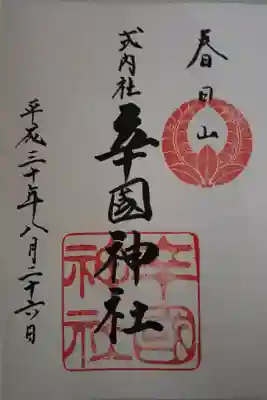 春日山
式内社
辛國神社
平成三十年八月二十六日
辛國
神社